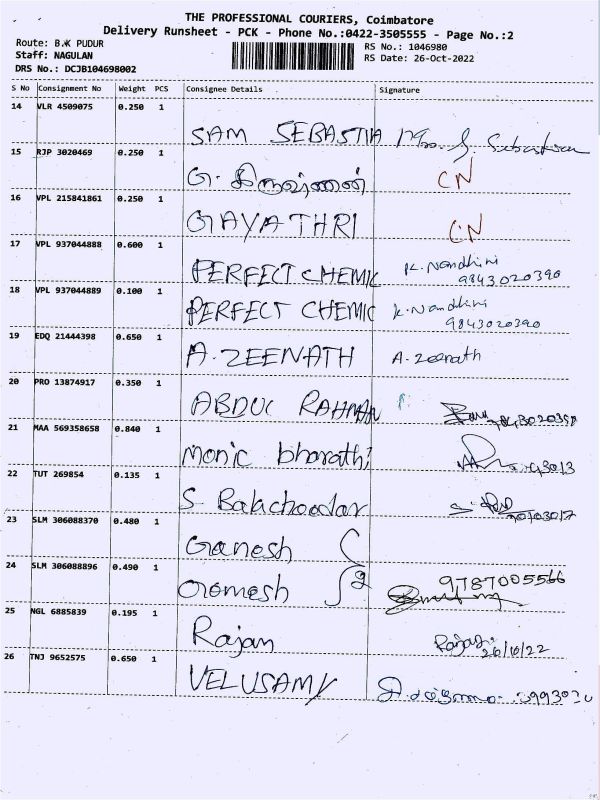 THE PROFESSIONAL COURIERS, Coimbatore
Delivery Runsheet - PCK - Phone No.:0422-3505555 - Page No.:2
Route: B.K PUDUR
RS No.: 1046980
Staff: NAGULAN
RS Date: 26-Oct-2022
DRS No.: DCJB104698002
S No Consignment No Weight PCS Consignee Details Signature
14 VLR 4509075 0.250 1 SAM SEBASTIA
15 RJP 3020469 0.250 1 CN
16 VPL 215841861 0.250 1 GAYATHRI CN
17 VPL 937044888 0.600 1 PERFECT CHEMIC K. Nandhini
9843020390
18 VPL 937044889 0.100 1 PERFECT CHEMIC K. Nandhini
9843020390
19 EDQ 21444398 0.650 1 A. ZEENATH A. Zeenath
20 PRO 13874917 0.350 1 ABDUL RAHMAN
21 MAA 569358658 0.840 1 Monic bharathi
22 TUT 269854 0.135 1 S Balachandar
23 SLM 306088370 0.480 1 Ganesh
24 SLM 306088896 0.490 1 2 9787005566
25 NGL 6885839 0.195 1 Rajan Rajan
26/10/22
26 TNJ 9652575 0.650 1 VELUSAMY